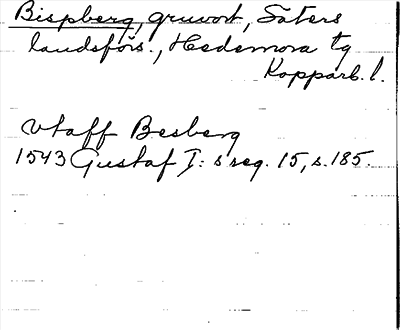 Bispberg, gruvort, Säters
landsförs., Hedemora tg
Kopparb. l.
vtaff Besberg
1543 Gustaf I:s reg. 15, s. 185.